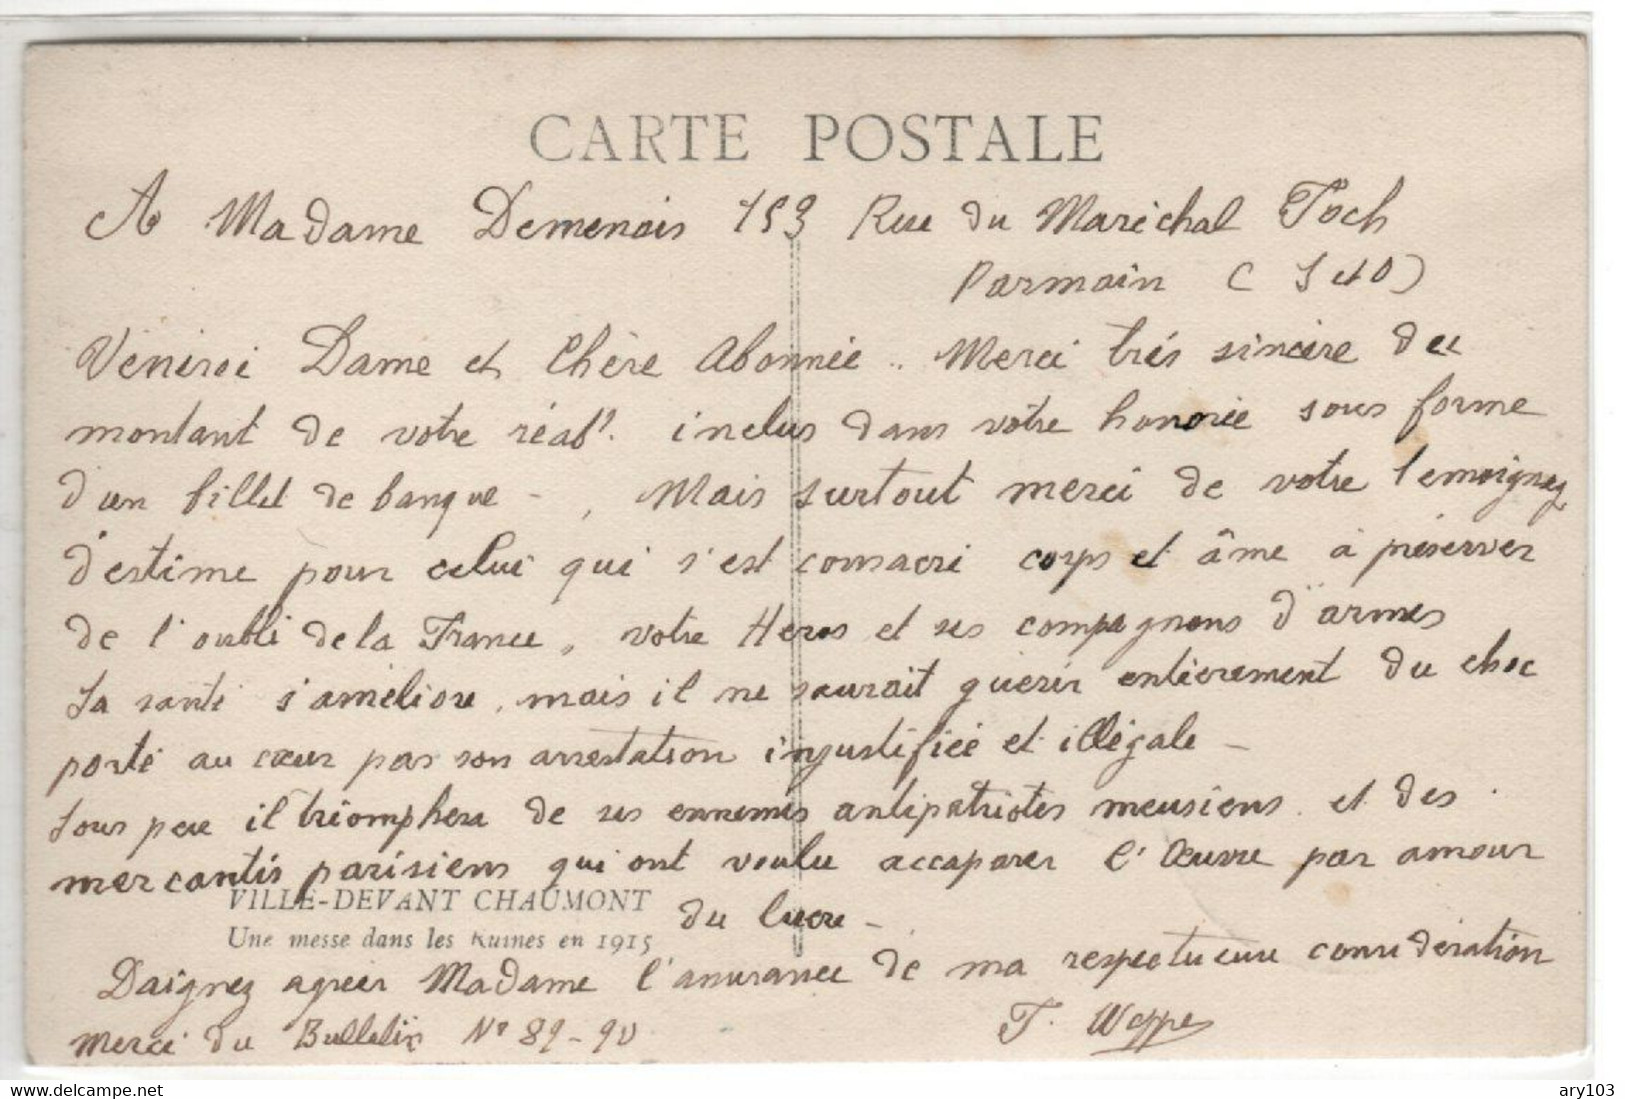 CARTE POSTALE
A Madame Demenois 153 Rue du Maréchal Foch
Parmain (S et O)
Vénéréé Dame et Chère Abonnée .. Merci très sincère du
montant de votre réabt. inclus dans votre honorée sous forme
d'un billet de banque - , Mais surtout merci de votre témoignag
d'estime pour celui qui s'est consacré corps et âme à préserver
de l'oubli de la France, votre Héros et ses compagnons d'armes
Sa santé s'améliore, mais il ne saurait guérir entièrement du choc
porté au cœur par son arrestation injustifiée et illégale -
Sous peu il triomphera de ses ennemis antipatriotes meusiens et des
mercantis parisiens qui ont voulu accaparer l'Œuvre par amour
du lucre -
VILLE-DEVANT CHAUMONT
Une messe dans les Ruines en 1915
Daignez agréer Madame l'assurance de ma respectueuse considération
Merci du Bulletin N° 89-90
ary103